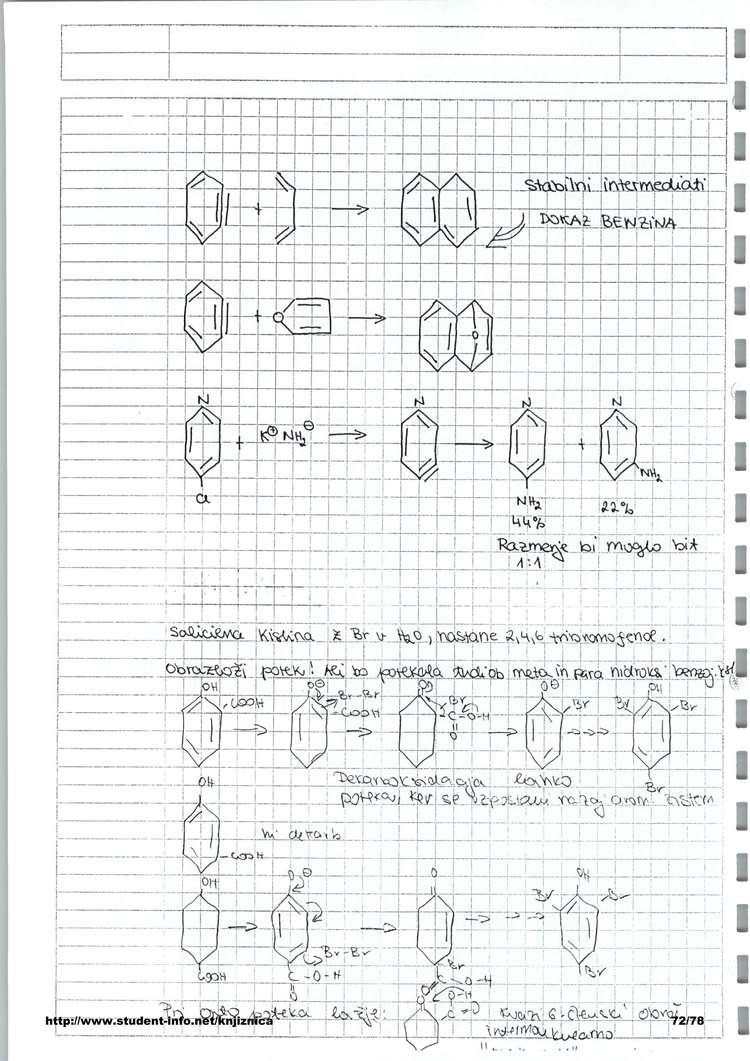 Stabilni intermediati
DOKAZ BENZINA
+
+ O
O
N N N N
+ K⊕ NH₂⊖ +
Cl NH₂ NH₂
44% 22%
Razmerje bi moglo bit
1:1
Salicilna Kislina z Br v H₂O, nastane 2,4,6 tribromofenol.
Obrazloži potek! Ali bo potekala tudi ob meta in para hidroksi benzoj.
OH O⊖ O O⊖ OH
COOH Br-Br Br Br Br Br
COOH C-O-H
O
Br
Dekarboksilacija lahko
poteka, ker se vzpostavi nazaj arom. sistem
OH
ni dekarb
COOH
OH O⊖ O OH
Br Br
Br-Br
COOH C-O-H Br Br
O C-O-H
O
Pri orto poteka lažje: O-H Kvazi 6-členski obroč
C=O
http://www.student-info.net/knjiznica 72/78